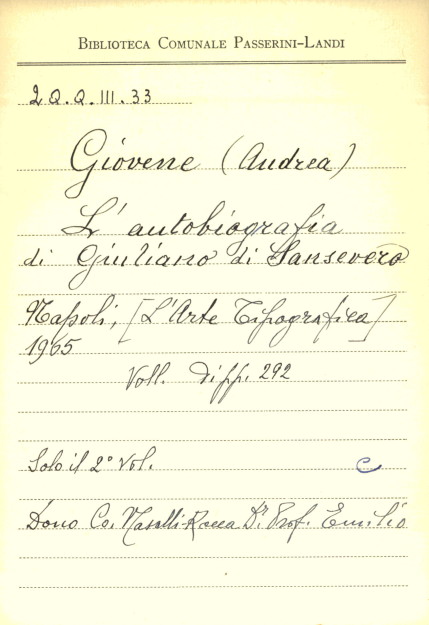 BIBLIOTECA COMUNALE PASSERINI-LANDI
2 Q.Q.III.33
Giovene (Andrea)
L'autobiografia
di Giuliano di Sansevero
Napoli, [L'Arte Tipografica]
1965
Voll. di pp. 292
Solo il 2° vol.
C
Dono Co. Nasalli-Rocca Dr. Prof. Emilio